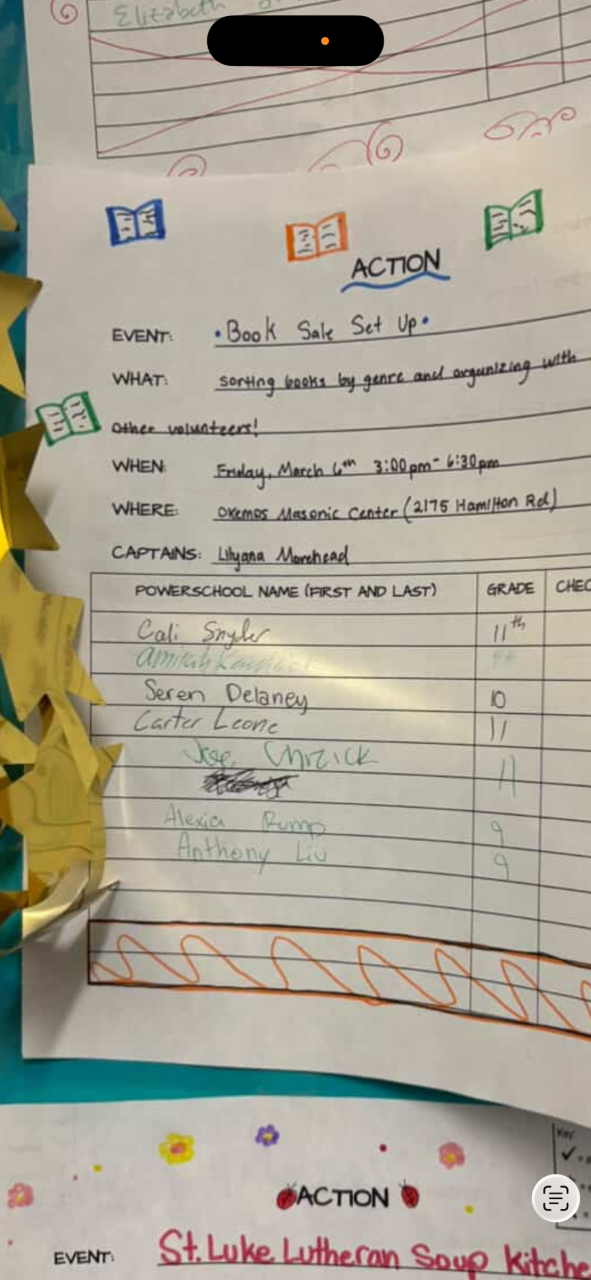 Elizabeth
ACTION
EVENT: • Book Sale Set Up •
WHAT: sorting books by genre and organizing with
other volunteers!
WHEN: Friday, March 6th 3:00pm - 6:30pm
WHERE: Okemos Masonic Center (2175 Hamilton Rd)
CAPTAINS: Lilyana Morehead
POWERSCHOOL NAME (FIRST AND LAST) GRADE CHEC
Cali Snyder 11th
Seren Delaney 10
Carter Leone 11
Chrzick 11
Alexia Rump 9
Anthony Liu 9
Key
ACTION
EVENT: St. Luke Lutheran Soup Kitche